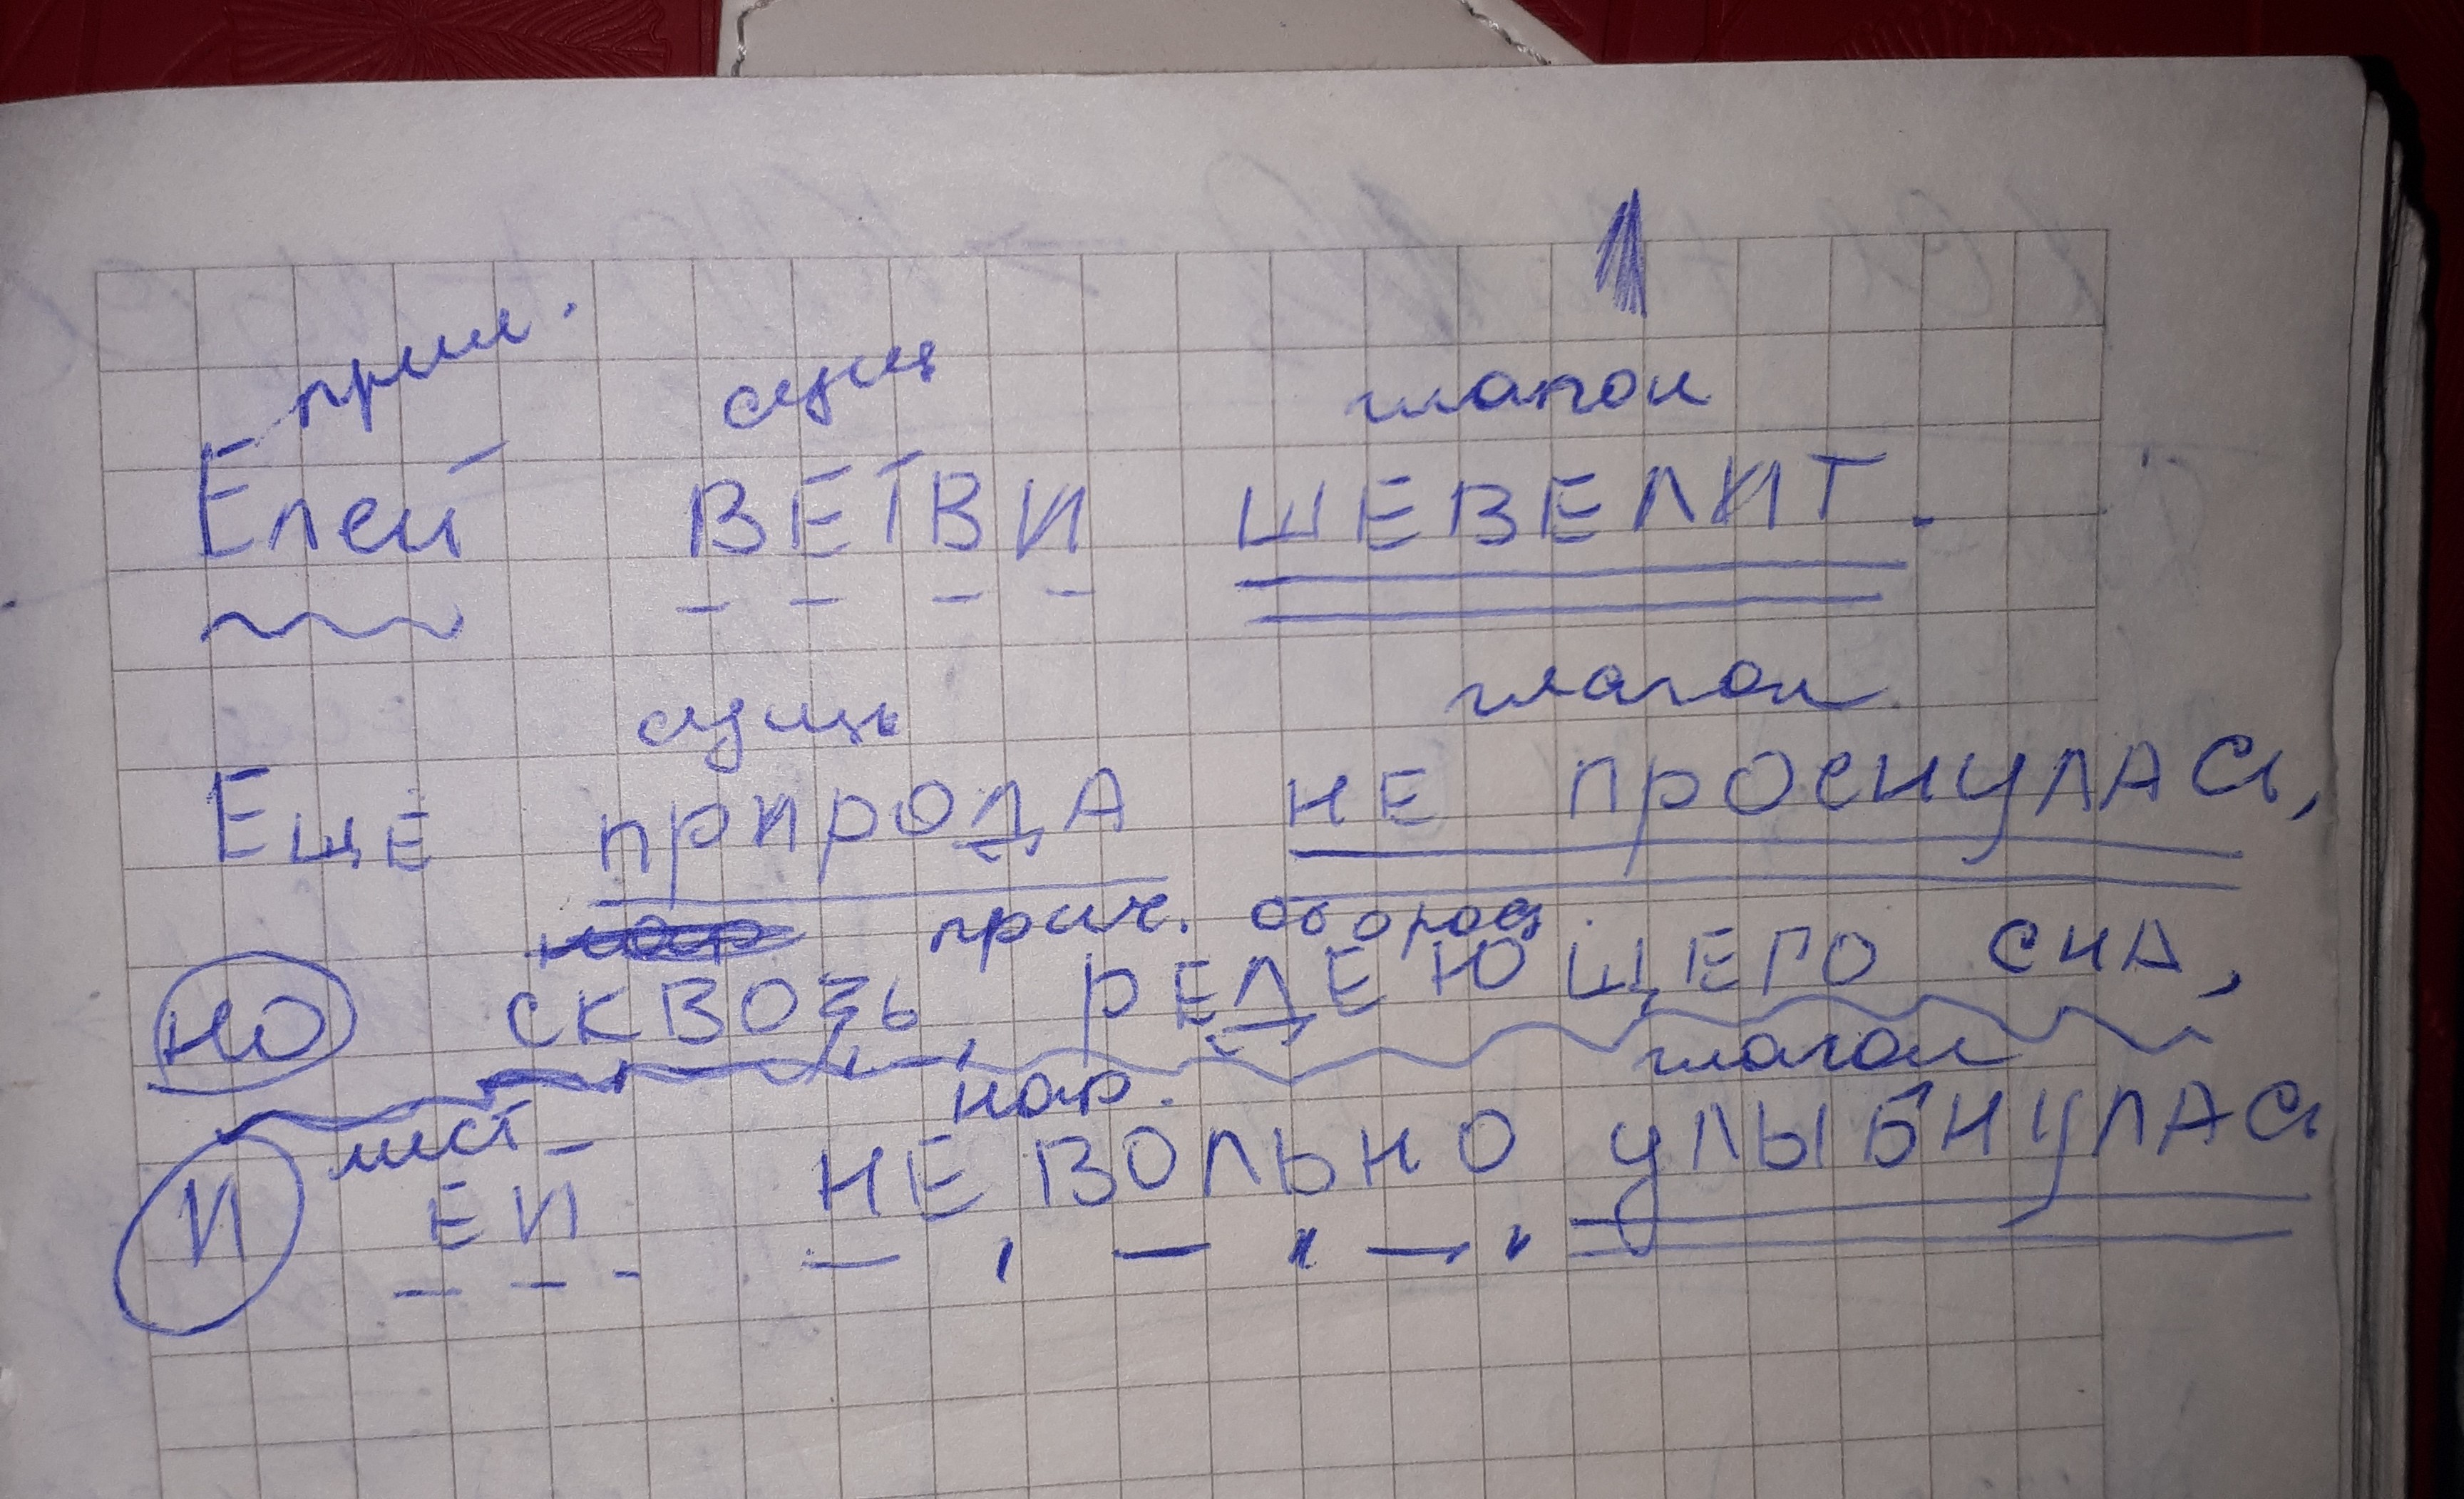 прил. сущ глагол
Елей ВЕТВИ ШЕВЕЛИТ.
сущь глагол
ЕЩЕ ПРИРОДА НЕ ПРОСНУЛАСЬ,
нар прич. оборот
НО СКВОЗЬ РЕДЕЮЩЕГО СНА,
мест нар. глагол
И ЕЙ НЕВОЛЬНО УЛЫБНУЛАСЬ